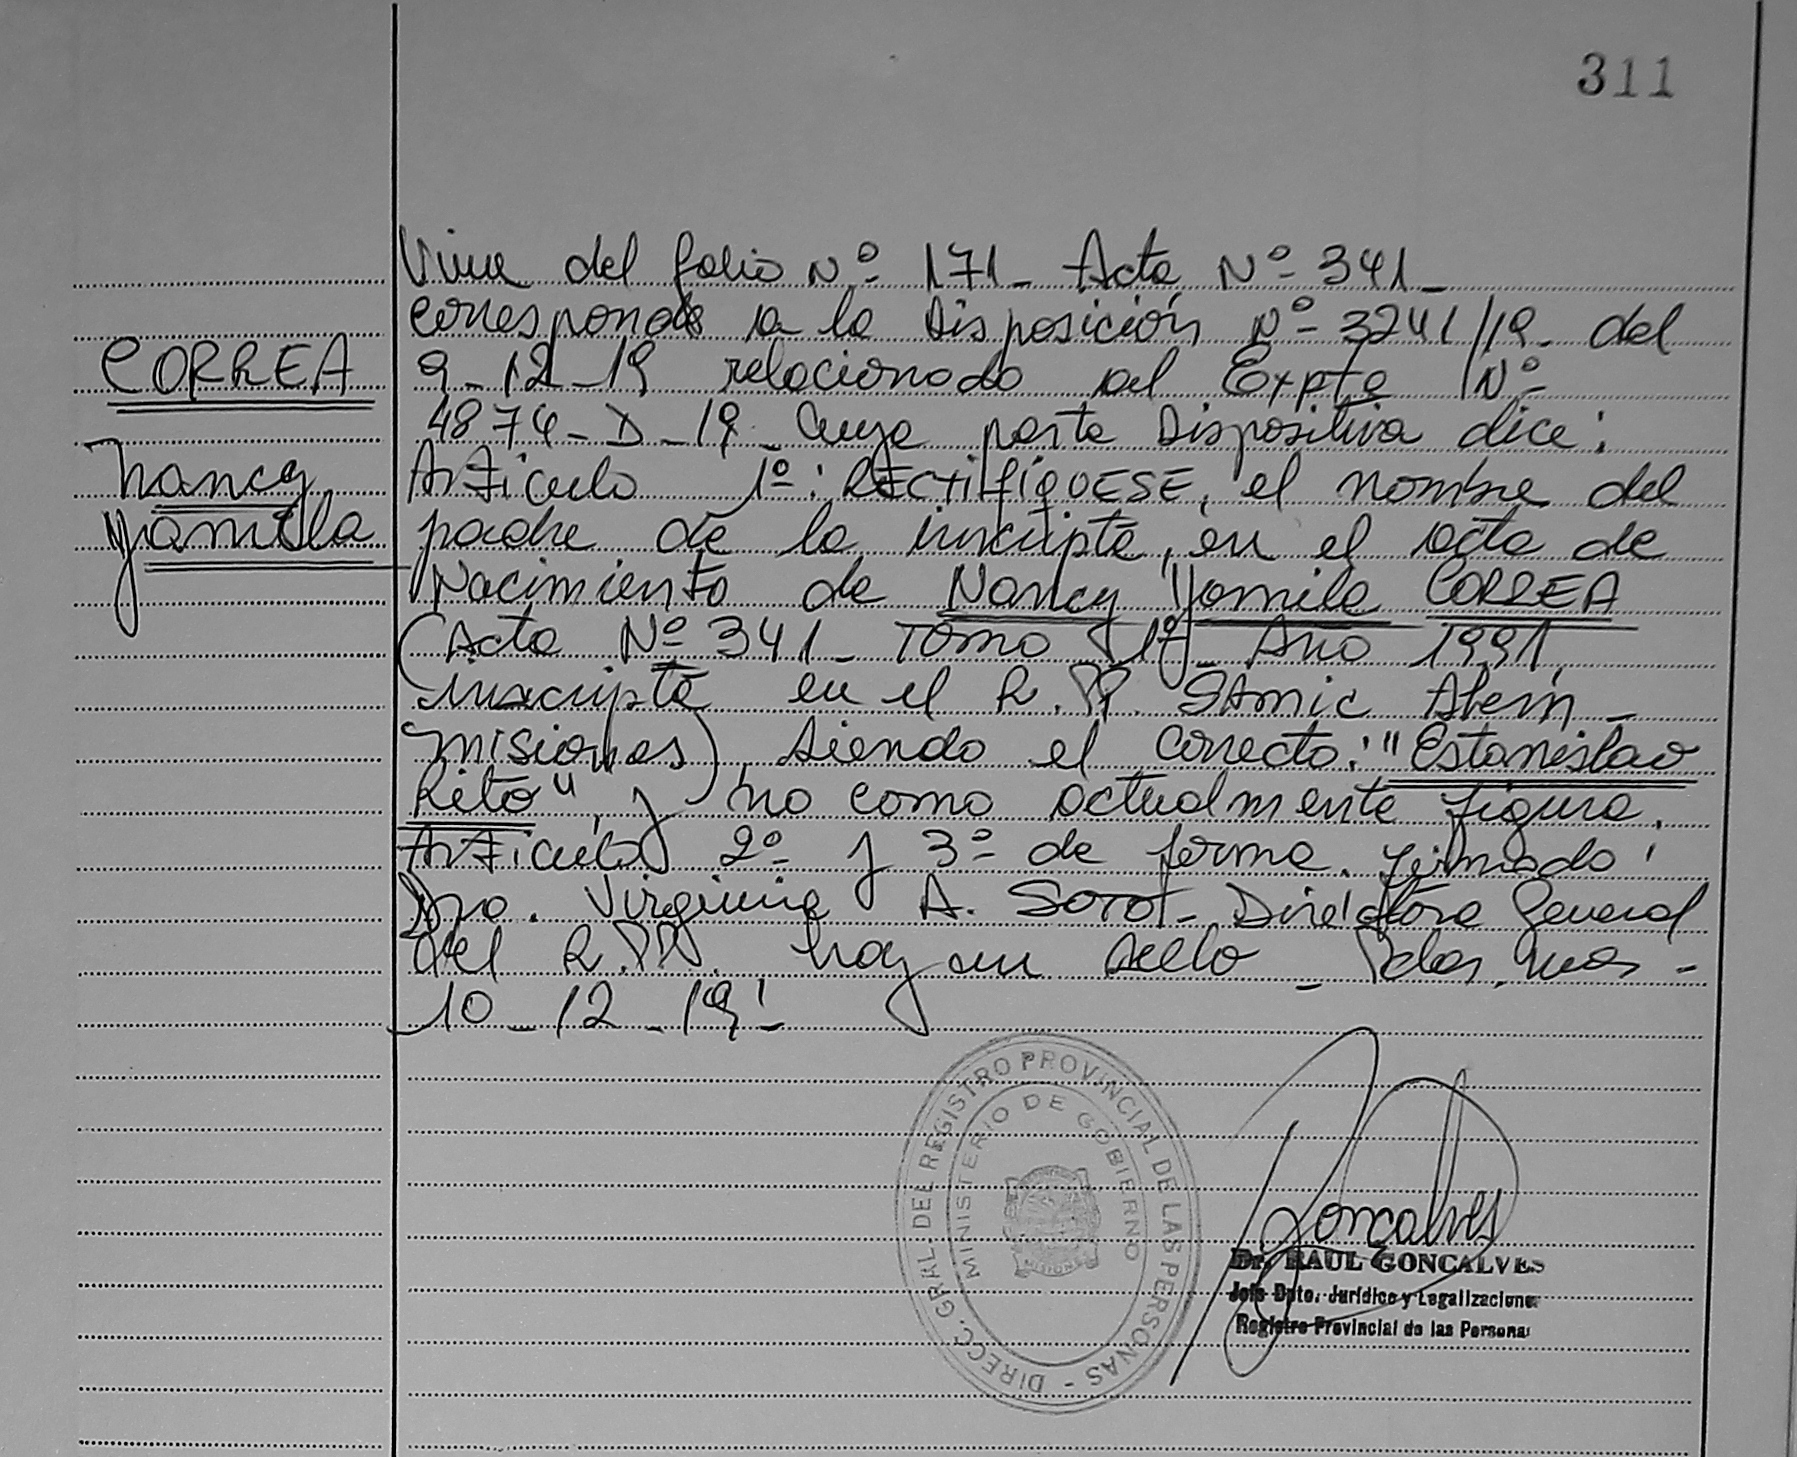 311
Viene del folio Nº 171 - Acta Nº 341 -
CORREA
Nancy
Yamila
corresponde a la Disposición Nº 3241/19 - del
9-12-19 relacionado al Expte Nº
4874-D-19 - Cuya parte Dispositiva dice:
Artículo 1º: RECTIFÍQUESE, el nombre del
padre de la inscripta, en el acta de
Nacimiento de Nancy Yamila CORREA
(Acta Nº 341 - Tomo 1º - Año 1991,
inscripta en el R.PP. Samic Alem -
Misiones), siendo el correcto: "Estanislao
Rito", y no como actualmente figura.
Artículo 2º y 3º de forma. Firmado:
Dra. Virginia A. Soto - Directora General
del R.PP. hay un sello - Pdas, Mnes -
10-12-19!
DIRECC. GRAL. DEL REGISTRO PROVINCIAL DE LAS PERSONAS -
MINISTERIO DE GOBIERNO
MISIONES
Goncalves
Dr. RAUL GONCALVES
Jefe Dpto. Jurídico y Legalizacione
Registro Provincial de las Persona